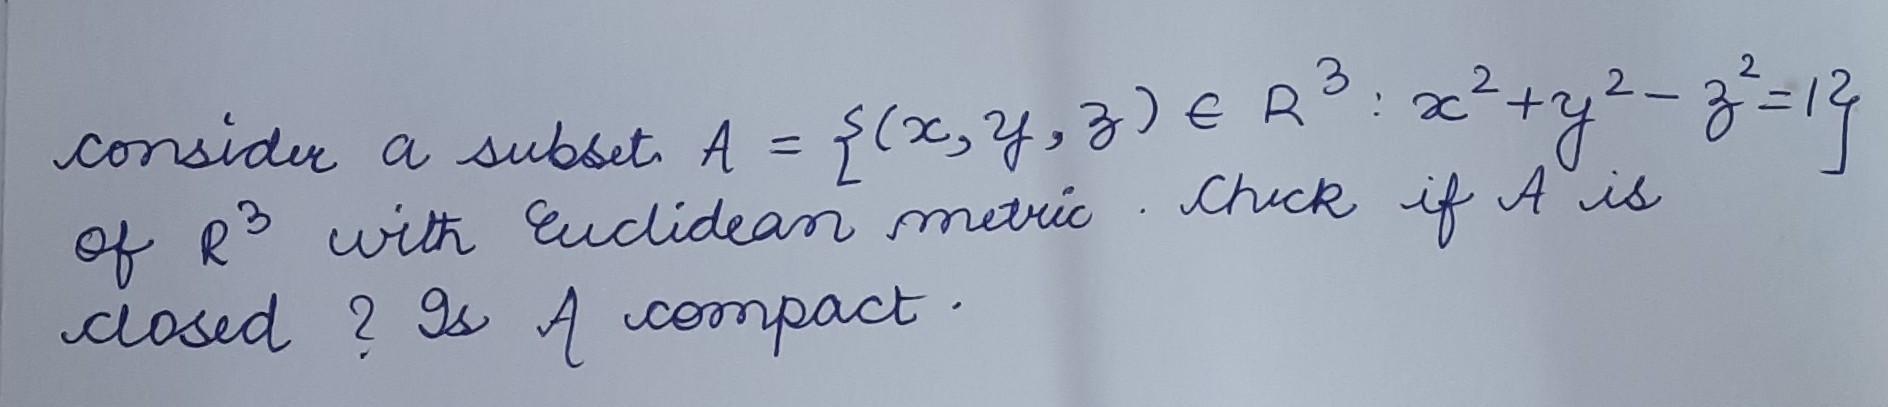 consider a subset A = {(x, y, z) ∈ R³ : x² + y² - z² = 1}
of R³ with Euclidean metric. Check if A is
closed ? Is A compact.